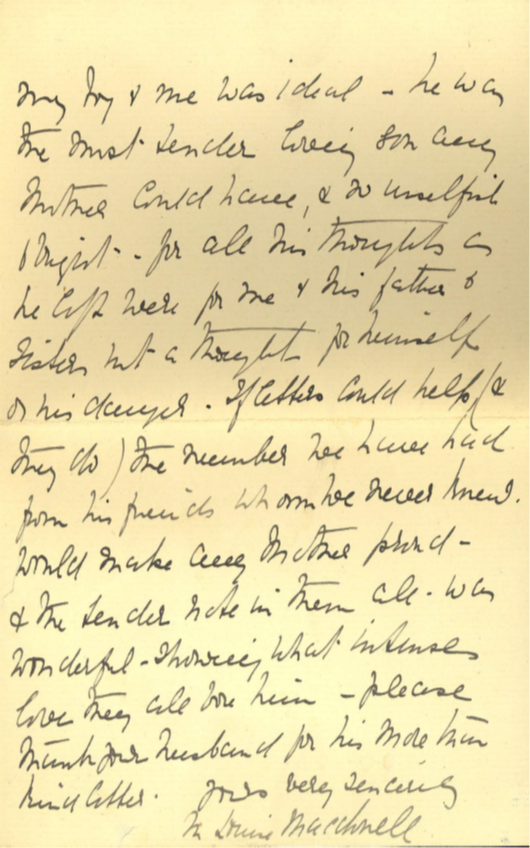 my boy & me was ideal - he was
the most tender loving son any
Mother could have, & so unselfish
& bright - for all his thoughts as
he left were for me & his father &
sisters not a thought for himself
or his danger. If letters could help (&
they do) the number we have had
from his friends whom we never knew.
would make any Mother proud -
& the tender note in them all - was
wonderful - showing what intense
love they all bore him - please
thank your husband for his more than
kind letter. yours very sincerely
Macdonell